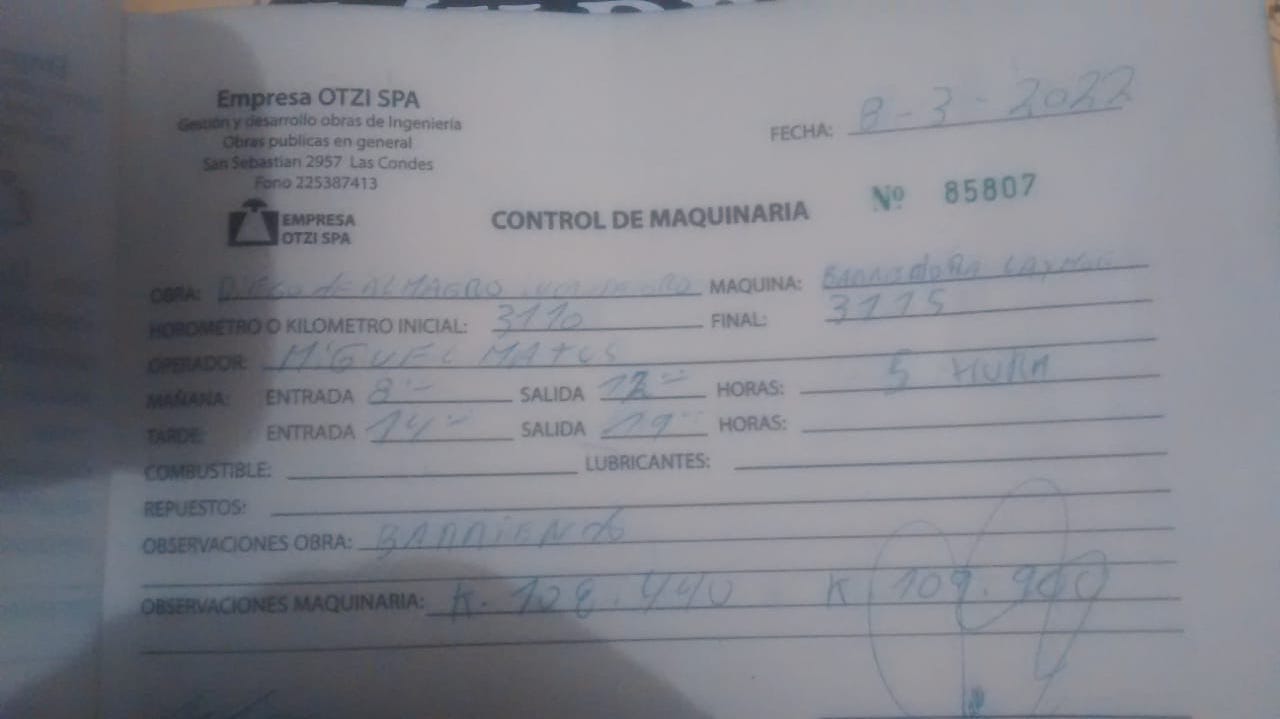 Empresa OTZI SPA
Gestión y desarrollo obras de Ingeniería
Obras publicas en general
San Sebastian 2957 Las Condes
Fono 225387413
EMPRESA
OTZI SPA
FECHA: 8-3-2022
CONTROL DE MAQUINARIA
Nº 85807
OBRA: DIEGO de ALMAGRO MAQUINA: BARREdORA
HOROMETRO O KILOMETRO INICIAL: 3110 FINAL: 3115
OPERADOR: MIGUEL MATUS
MAÑANA: ENTRADA 8 SALIDA HORAS: 5 HURA
TARDE: ENTRADA 14 SALIDA 19 HORAS:
COMBUSTIBLE: LUBRICANTES:
REPUESTOS:
OBSERVACIONES OBRA: BARRIENdo
OBSERVACIONES MAQUINARIA: K. 108.440 K 109.940